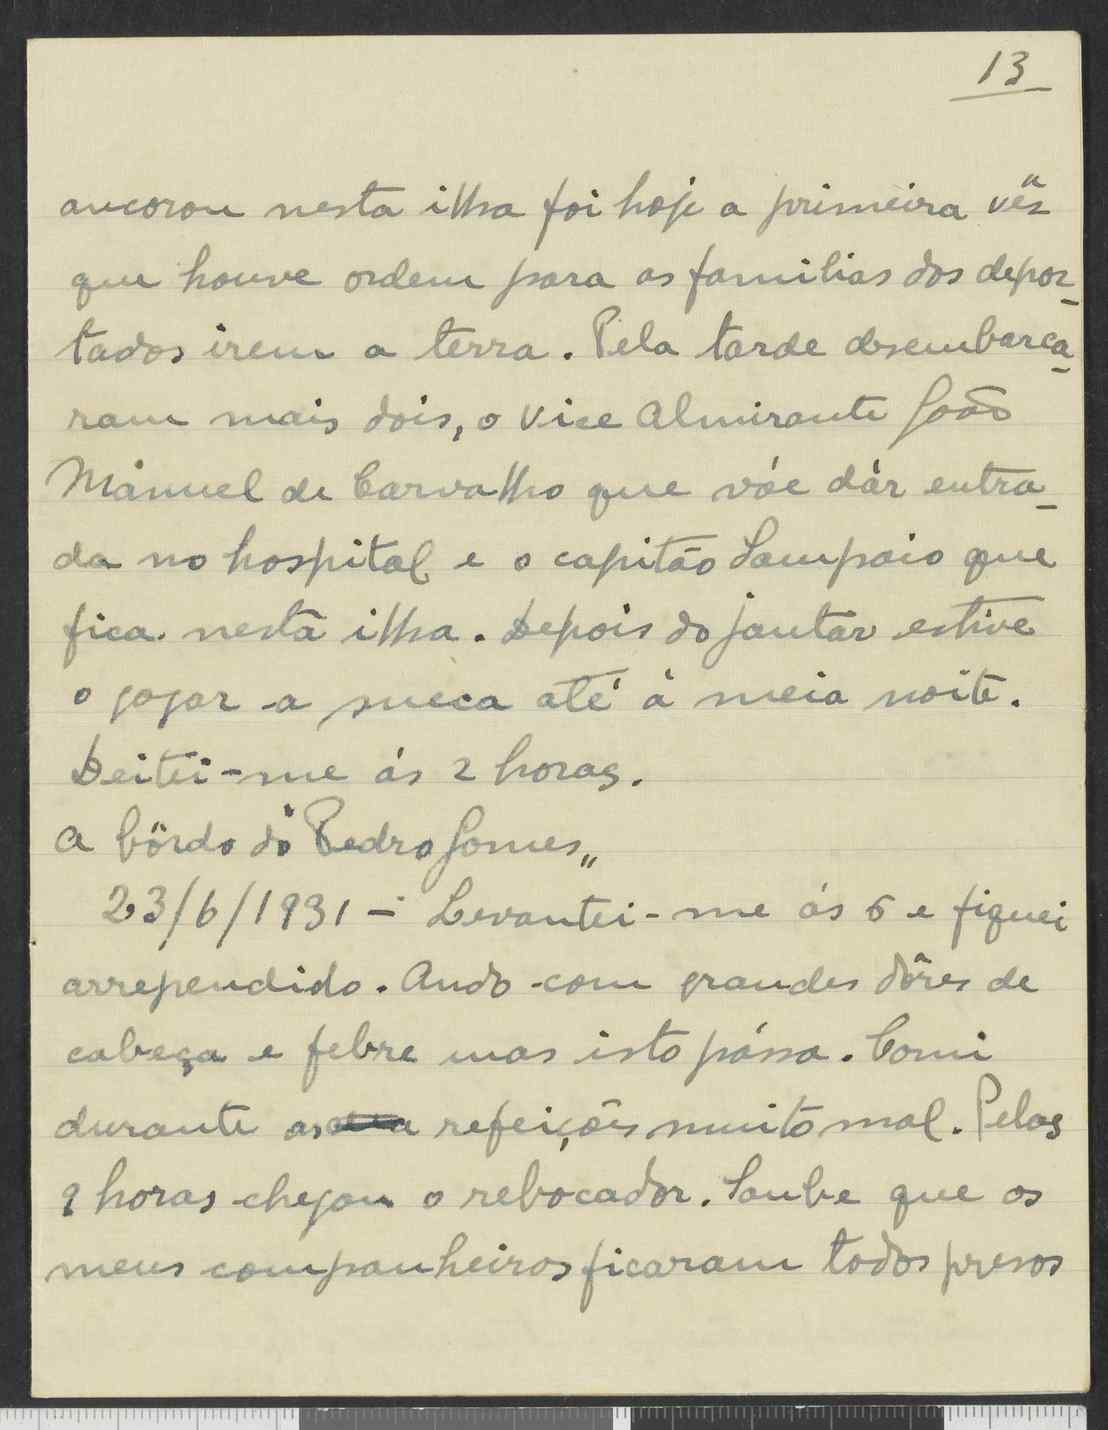 13
ancorou nesta ilha foi hoje a primeira vês
que houve ordem para as familias dos depor-
tados irem a terra. Pela tarde desembarca-
ram mais dois, o Vice Almirante João
Manuel de Carvalho que váe dár entra-
da no hospital e o capitão Sampaio que
fica nesta ilha. Depois do jantar estive
a jogar a sueca até á meia noite.
Deitei-me ás 2 horas.
A bôrdo do Pedro Gomes"
23/6/1931 - Levantei-me ás 6 e fiquei
arrependido. Ando com grandes dôres de
cabeça e febre mas isto pássa. Comi
durante as refeições muito mal. Pelas
9 horas chegou o rebocador. Soube que os
meus companheiros ficaram todos presos